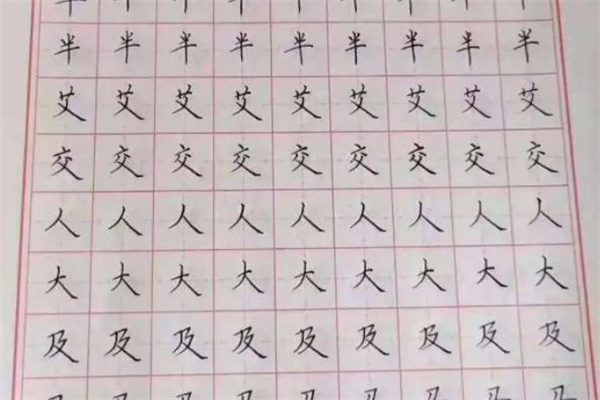 半半半半半半半半半
艾艾艾艾艾艾艾艾艾
交交交交交交交交交
人人人人人人人人人
大大大大大大大大大
及及及及及及及及及